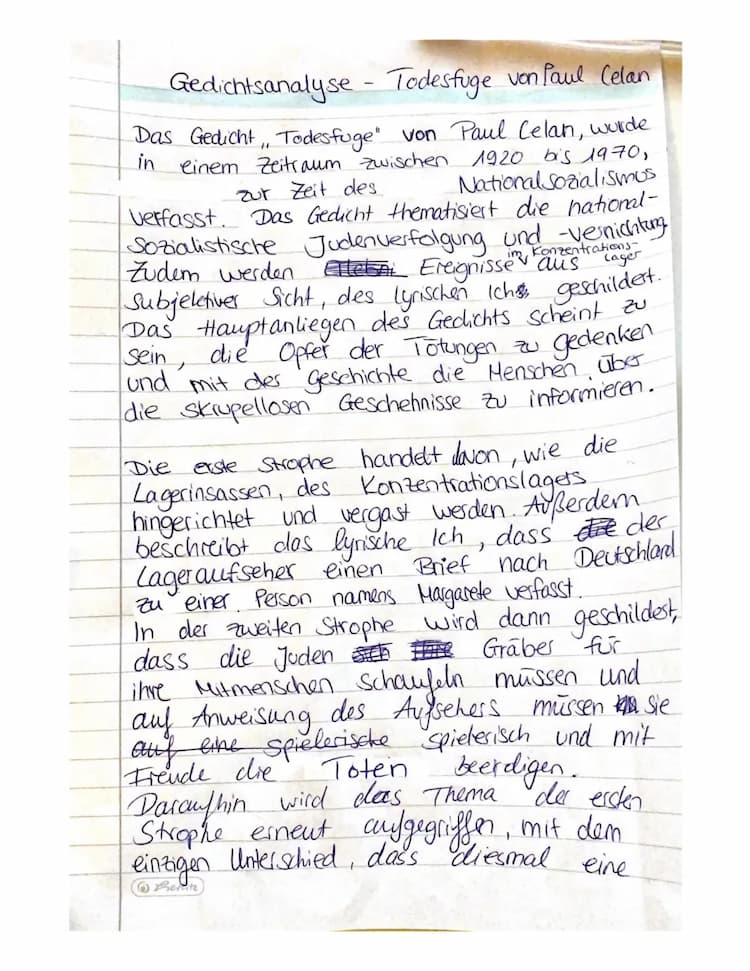 Gedichtsanalyse - Todesfuge von Paul Celan
Das Gedicht „Todesfuge" von Paul Celan, wurde
in einem Zeitraum zwischen 1920 bis 1970,
zur Zeit des Nationalsozialismus
verfasst. Das Gedicht thematisiert die national-
sozialistische Judenverfolgung und -vernichtung
Zudem werden Ereignisse im Konzentrations-
lager aus
subjektiver Sicht, des lyrischen Ichs geschildert.
Das Hauptanliegen des Gedichts scheint zu
sein, die Opfer der Tötungen zu gedenken
und mit der Geschichte die Menschen über
die skrupellosen Geschehnisse zu informieren.
Die erste Strophe handelt davon, wie die
Lagerinsassen, des Konzentrationslagers
hingerichtet und vergast werden. Außerdem
beschreibt das lyrische Ich, dass der
Lageraufseher einen Brief nach Deutschland
zu einer Person namens Margarete verfasst.
In der zweiten Strophe wird dann geschildert,
dass die Juden Gräber für
ihre Mitmenschen schaufeln müssen und
auf Anweisung des Aufsehers müssen sie
auf eine spielerische spielerisch und mit
Freude die Toten beerdigen.
Daraufhin wird das Thema der ersten
Strophe erneut aufgegriffen, mit dem
einzigen Unterschied, dass diesmal eine